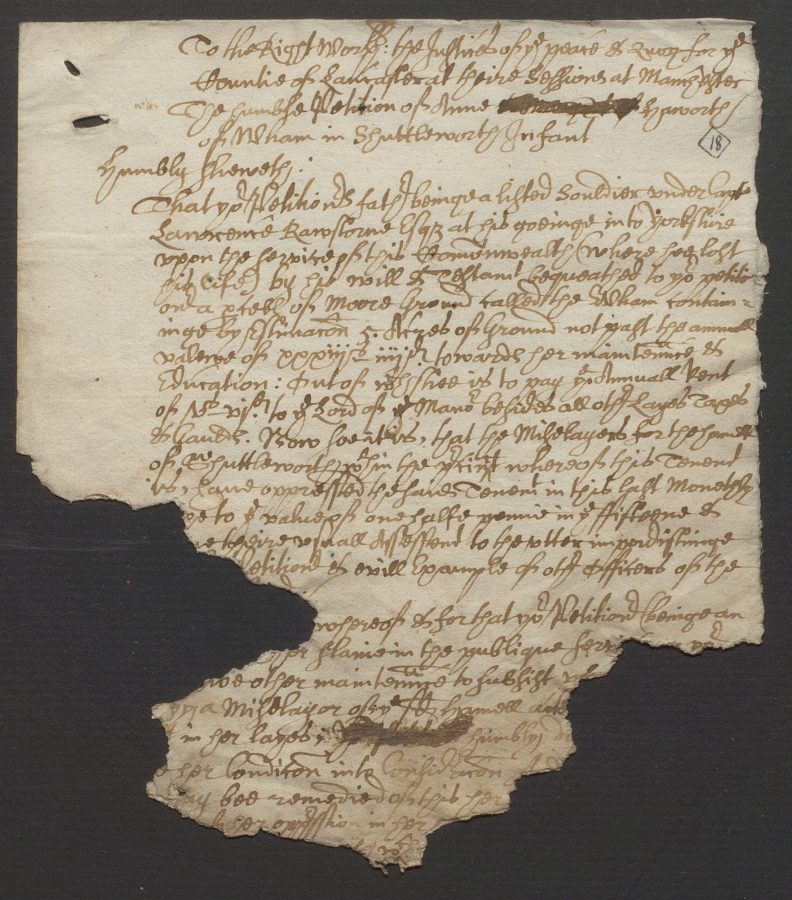 To the Right Worspp: the Justices of ye peace & Quor for ye
Countie of Lancaster at theire Sessions at Manchester
The humble Petition of Anne Haworth
of Wham in Shuttleworth Infant
18
Humbly Sheweth:
That yor Petitionrs fathr beinge a listed Souldier vnder Capt
Lawrence Rawstorne Esqr at his goeinge into Yorkshire
vpon the service of this Comonwealth (where hee lost
his Life) by his will & Testamt bequeathed to yor petiti-
onr a pcell of Moore Ground called the Wham contain-
inge by estimacon 5 Acres of Ground not past the annuall
valewe of xxxiijs iiijd towards her maintennce &
Education: Out of wch shee is to pay ye Annuall Rent
of vjs to ye Lord of ye Manor besides all othr Layes Taxes
& Gaulds. Now soe it is, that the Miselayers for the hamell
of Shuttleworth wthin the pcinct whereof this Tenemt
is, have oppressed the said Tenemt in this last Monethly
to ye value of one halfe pennie in ye fifteene &
theire vsuall Assessemt to the vtter impovrishinge
Petitionr & evill Example of othr Officers of the
whereof & for that yor Petitionr (beinge an
slaine in the publique serv
other maintennce to subsist
a Miselayor of ye sd Hamell
in her layes; humbly
her Condicon into Considracon
may bee remedied of this her
her oppssion in her